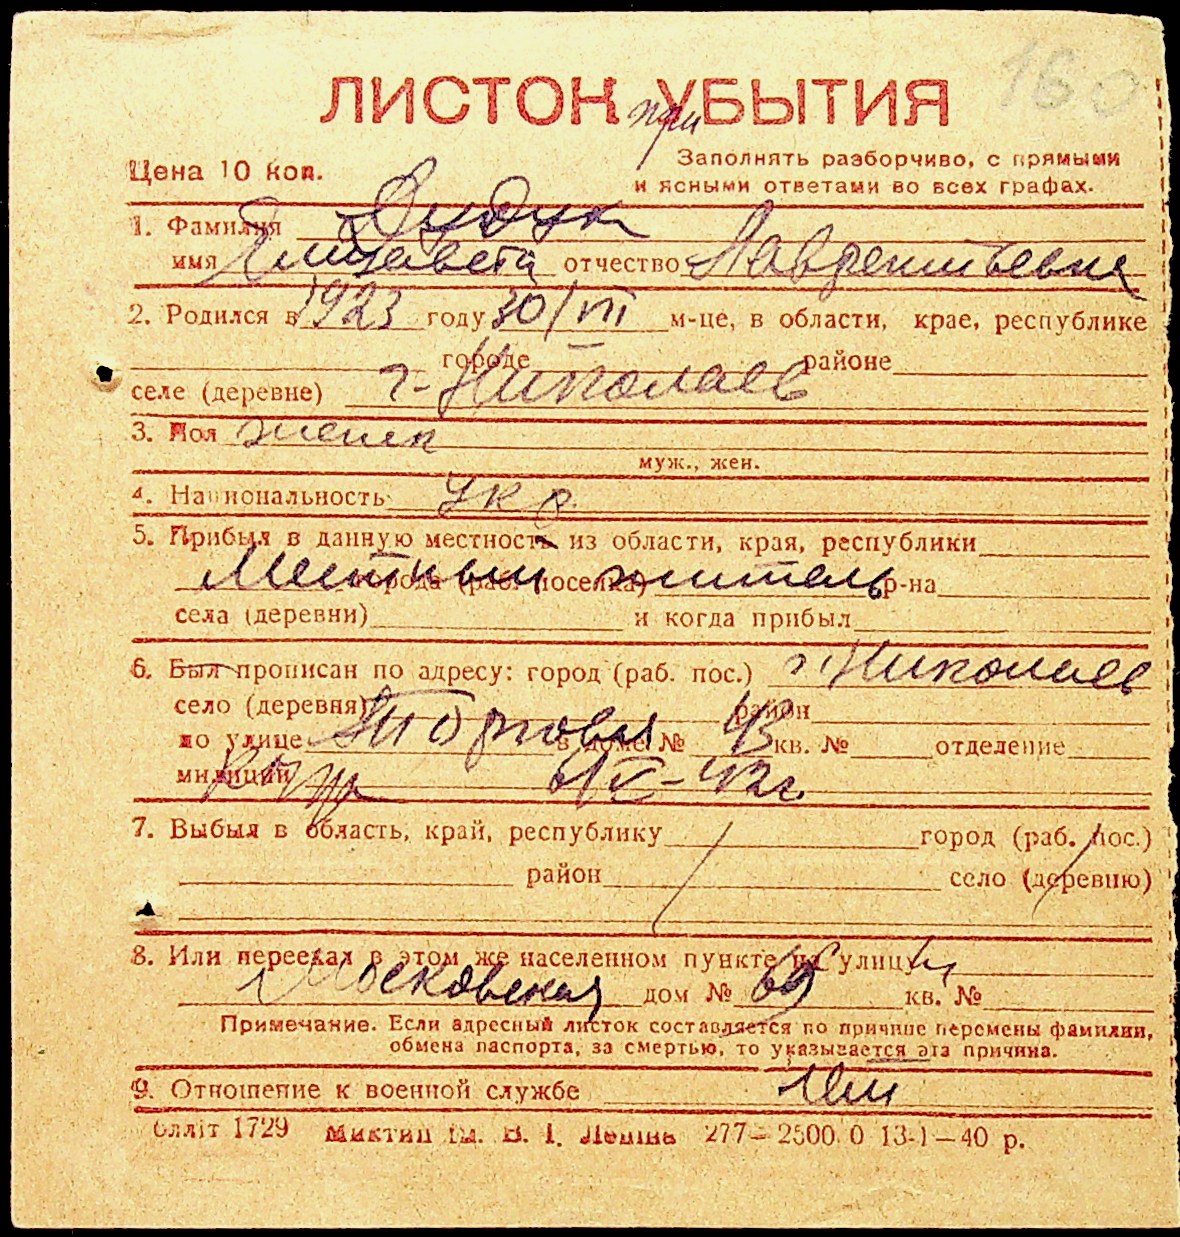 160
ЛИСТОК УБЫТИЯ
при
Цена 10 коп.
Заполнять разборчиво, с прямыми
и ясными ответами во всех графах.
1. Фамилия Дудук
имя Елизавета отчество Лаврентьевна
2. Родился в 1923 году 30/VII м-це, в области, крае, республике
городе районе
селе (деревне) г. Николаев
3. Пол женск
муж., жен.
4. Национальность укр.
5. Прибыл в данную местность из области, края, республики
Местный житель города (раб. поселка) р-на
села (деревни) и когда прибыл
6. Был прописан по адресу: город (раб. пос.) г. Николаев
село (деревня) район
по улице Торговая в доме № 43 кв. № отделение
милиции 42г.
7. Выбыл в область, край, республику город (раб. пос.)
район село (деревню)
8. Или переехал в этом же населенном пункте на улицу
Московская дом № 69 кв. №
Примечание. Если адресный листок составляется по причине перемены фамилии,
обмена паспорта, за смертью, то указывается эта причина.
9. Отношение к военной службе
Блліт 1729 Миктип ім. В. І. Леніна 277—2500.0 13-1—40 р.